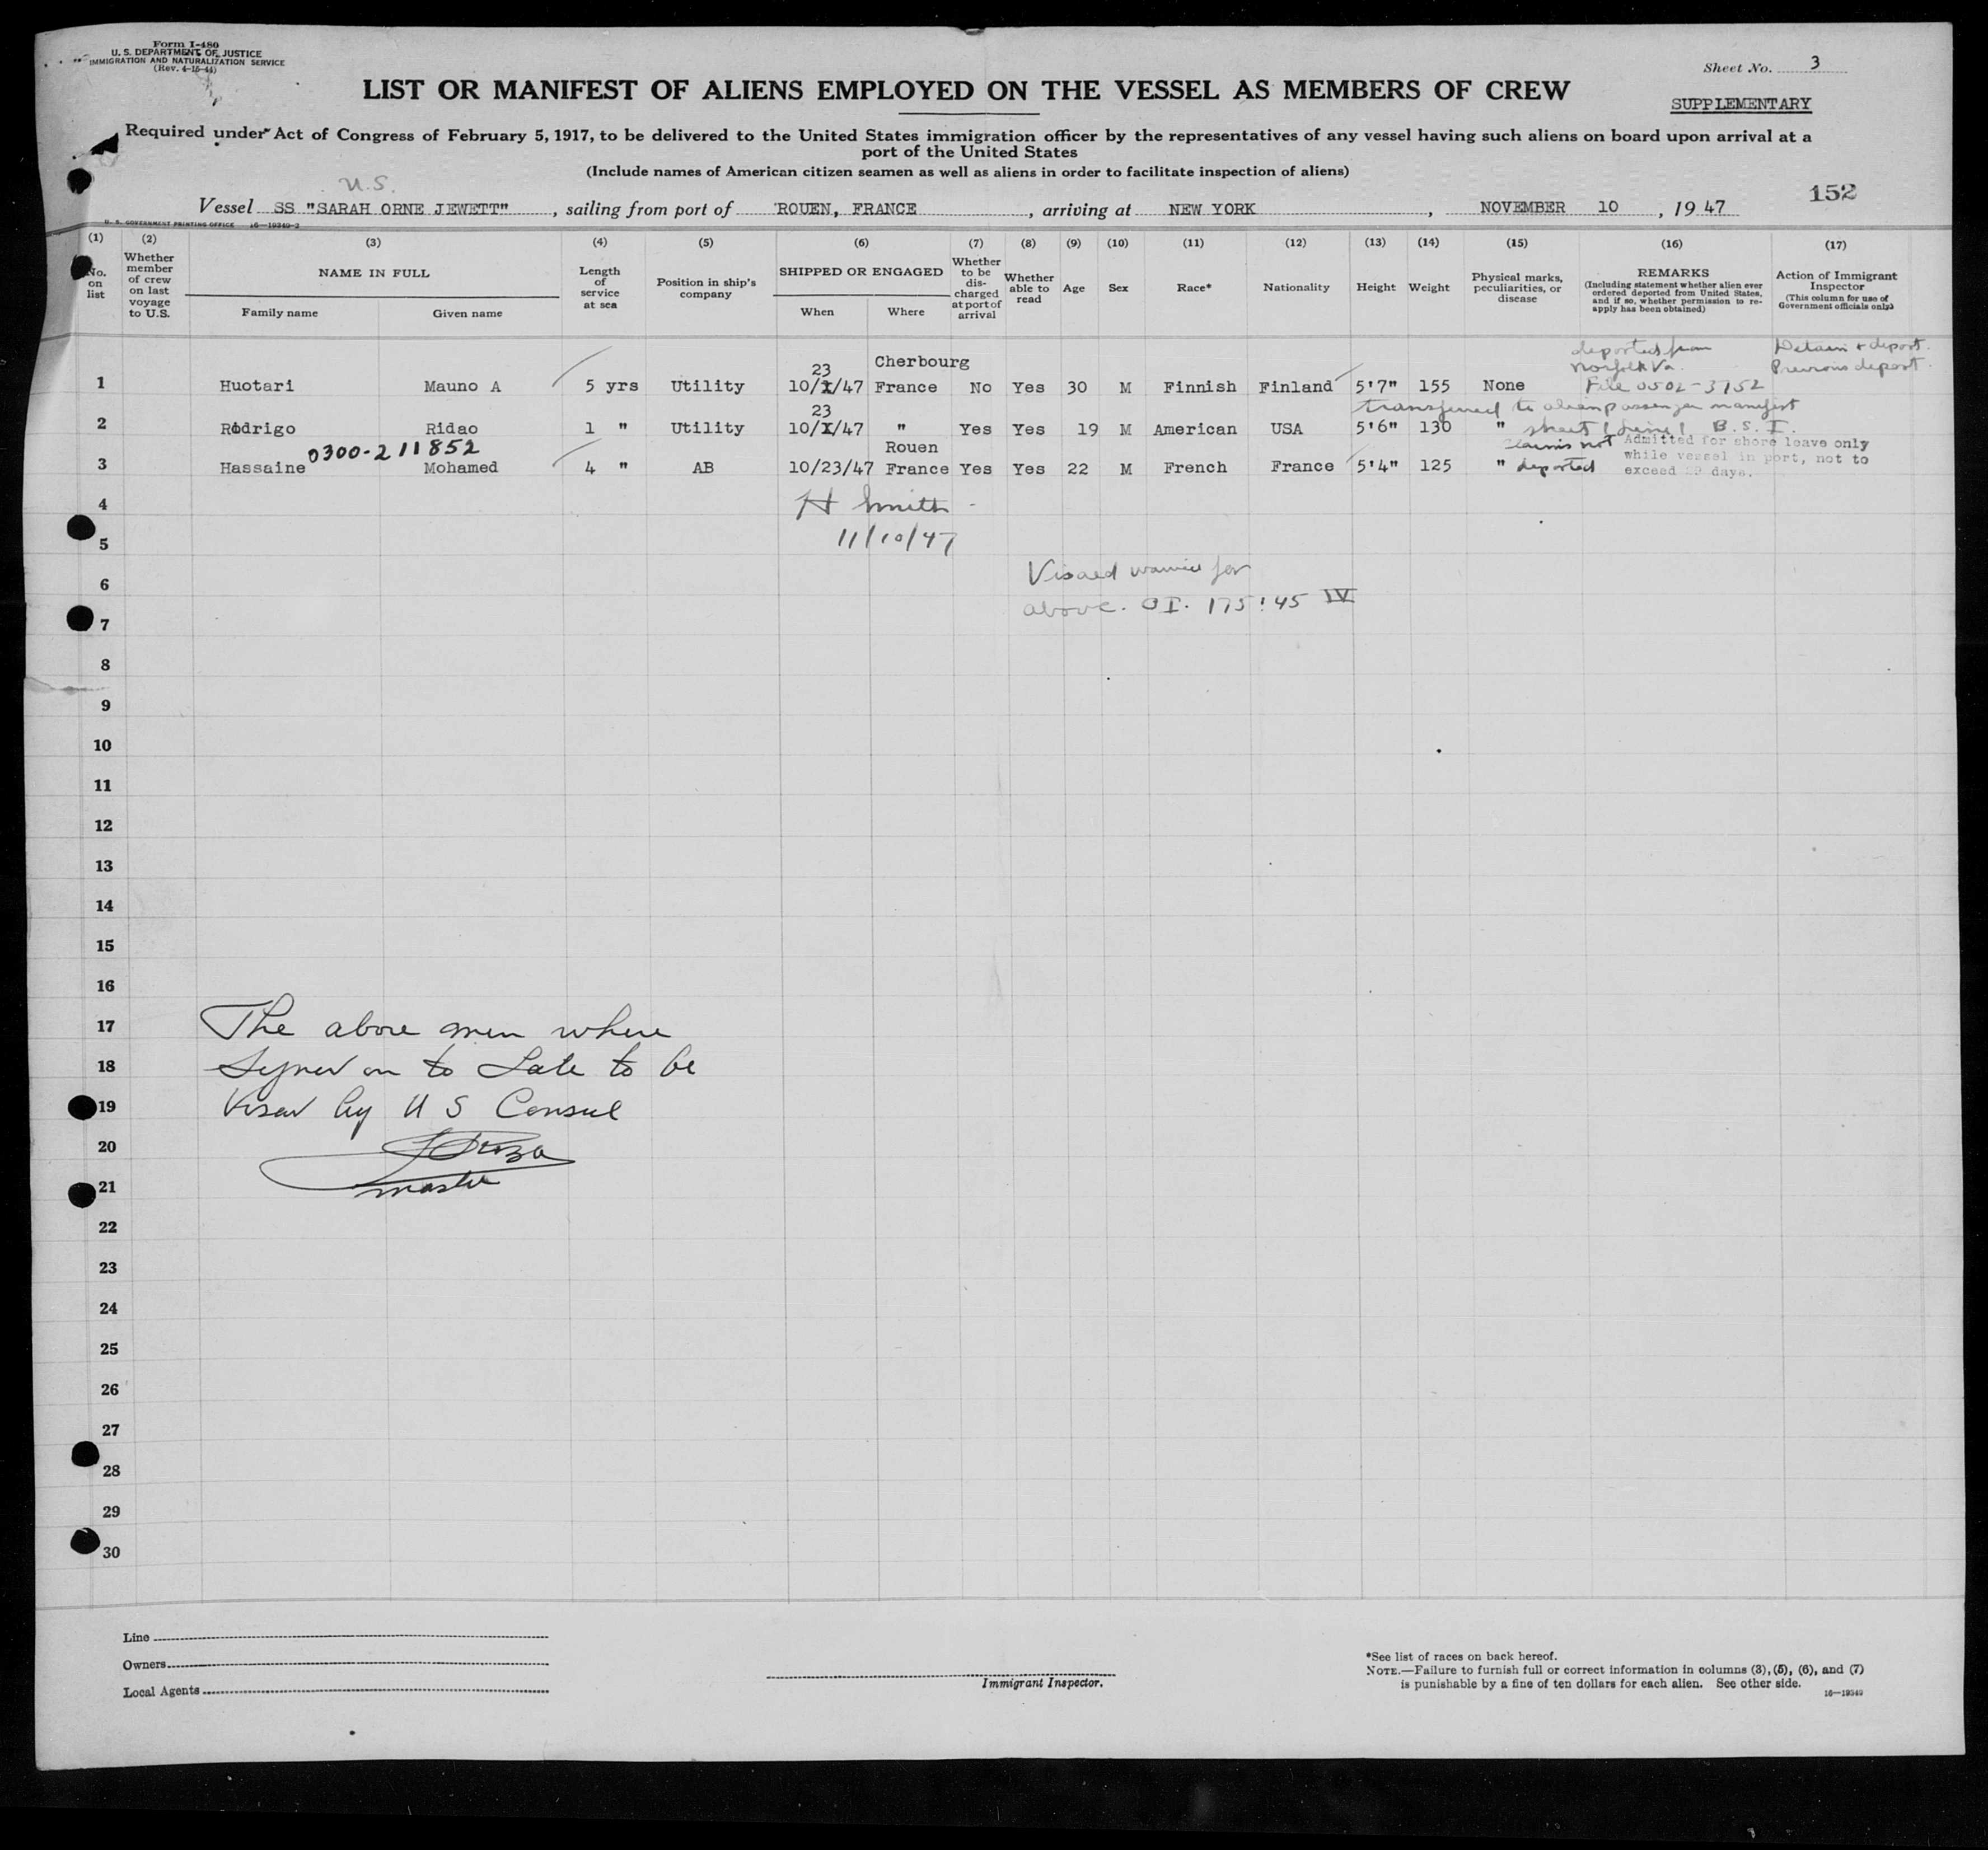 Form I-480
U. S. DEPARTMENT OF JUSTICE
IMMIGRATION AND NATURALIZATION SERVICE
(Rev. 4-15-44)
Sheet No. 3
LIST OR MANIFEST OF ALIENS EMPLOYED ON THE VESSEL AS MEMBERS OF CREW
SUPPLEMENTARY
Required under Act of Congress of February 5, 1917, to be delivered to the United States immigration officer by the representatives of any vessel having such aliens on board upon arrival at a
port of the United States
(Include names of American citizen seamen as well as aliens in order to facilitate inspection of aliens)
U.S.
152
Vessel SS "SARAH ORNE JEWETT", sailing from port of ROUEN, FRANCE, arriving at NEW YORK, NOVEMBER 10, 1947
U. S. GOVERNMENT PRINTING OFFICE 16—19349-2
(1) No. on list
(2) Whether member of crew on last voyage to U.S.
(3) NAME IN FULL
Family name Given name
(4) Length of service at sea
(5) Position in ship's company
(6) SHIPPED OR ENGAGED
When Where
(7) Whether to be discharged at port of arrival
(8) Whether able to read
(9) Age
(10) Sex
(11) Race*
(12) Nationality
(13) Height
(14) Weight
(15) Physical marks, peculiarities, or disease
(16) REMARKS
(Including statement whether alien ever ordered deported from United States, and if so, whether permission to reapply has been obtained)
(17) Action of Immigrant Inspector
(This column for use of Government officials only)
deported from Detain & deport.
23 Cherbourg Norfolk Va. Previous deport.
1 Huotari Mauno A 5 yrs Utility 10/1/47 France No Yes 30 M Finnish Finland 5'7" 155 None File 0502-3752
23 transferred to alien passenger manifest
2 Rodrigo Ridao 1 " Utility 10/1/47 " Yes Yes 19 M American USA 5'6" 130 " sheet 1 line 1 B.S.I.
0300-211852 Rouen claims not Admitted for shore leave only
3 Hassaine Mohamed 4 " AB 10/23/47 France Yes Yes 22 M French France 5'4" 125 " deported while vessel in port, not to
exceed 29 days.
4
H Smith
5
11/10/47
6
Visaed waived for
7
above. OI. 175:45 IV
8
9
10
11
12
13
14
15
16
17 The above men where
18 Signed on to Late to be
19 Visad by U S Consul
20
21 master
22
23
24
25
26
27
28
29
30
Line
Owners
Local Agents
Immigrant Inspector.
*See list of races on back hereof.
NOTE.—Failure to furnish full or correct information in columns (3), (5), (6), and (7)
is punishable by a fine of ten dollars for each alien. See other side.
16—19349